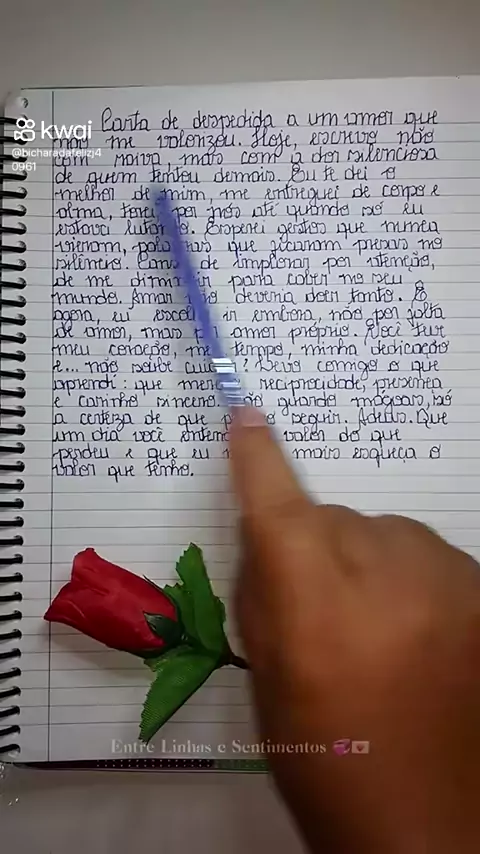 Carta de despedida a um amor que
não me valorizou. Hoje, escrevo não
com raiva, mas com a dor silenciosa
de quem tentou demais. Eu te dei o
melhor de mim, me entreguei de corpo e
alma, por nós até quando só eu
estava lutando. Esperei gestos que nunca
vieram, palavras que ficaram presas no
silêncio. Cansei de implorar por atenção,
de me diminuir para caber no seu
mundo. Amar não deveria doer tanto. E
agora, eu escolhi ir embora, não por falta
de amor, mas por amor próprio. Você teve
meu coração, meu tempo, minha dedicação
e... não soube cuidar! Levo comigo o que
aprendi: que mereço reciprocidade, presença
e carinho sincero. Não guardo mágoas, só
a certeza de que preciso seguir. Adeus. Que
um dia você entenda o valor do que
perdeu e que eu mais esqueça o
valor que tenho.
kwai
@bicharadafelizj4
0961
Entre Linhas e Sentimentos